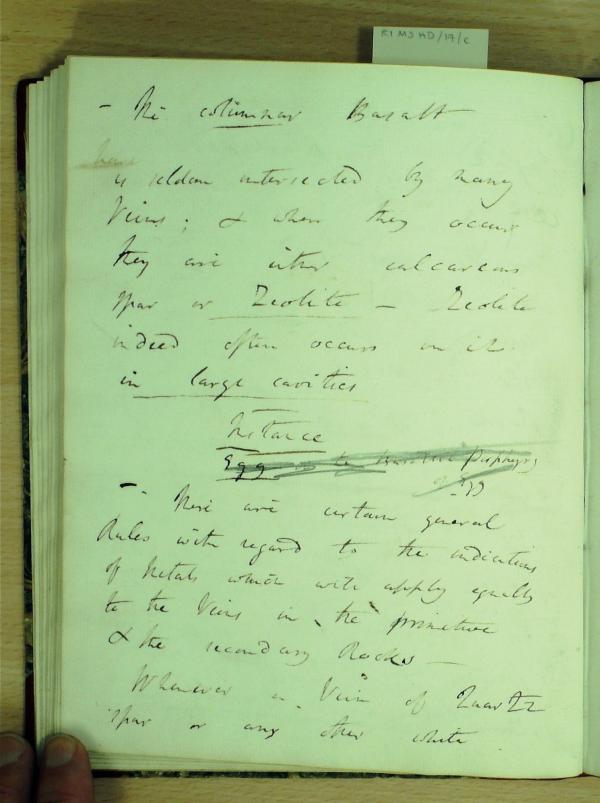 RI MS HD/17/c
- The columnar Basalt
is seldom intersected by many
Veins; & when they occur
they are either calcareous
spar or Zeolite - Zeolite
indeed often occurs in it
in large cavities
Instance
Egg in the Porphyry
of Egg
- There are certain general
Rules with regard to the indications
of Metals which will apply equally
to the Veins in the primitive
& the secondary Rocks -
Whenever a Vein of Quartz
spar or any other white